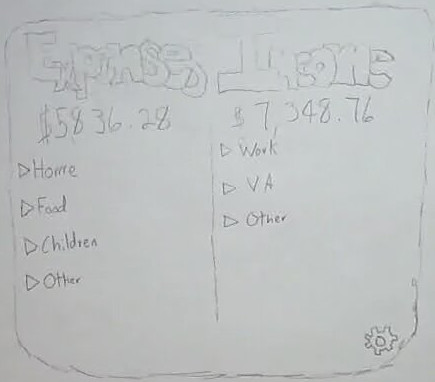 Expenses
$5836.28
Home
Food
Children
Other
Income
$7,348.76
Work
VA
Other